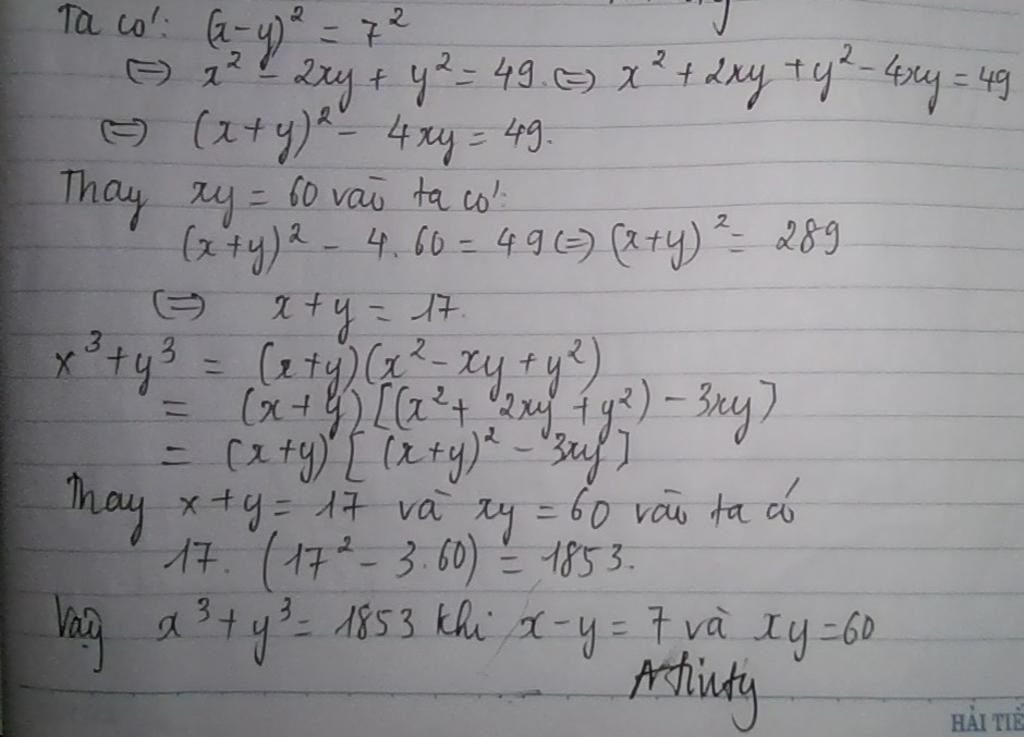 Ta có: (x-y)² = 7²
⇔ x² - 2xy + y² = 49. ⇔ x² + 2xy + y² - 4xy = 49
⇔ (x+y)² - 4xy = 49.
Thay xy = 60 vào ta có:
(x+y)² - 4.60 = 49 ⇔ (x+y)² = 289
⇔ x + y = 17.
x³ + y³ = (x+y)(x² - xy + y²)
= (x+y)[(x² + 2xy + y²) - 3xy]
= (x+y)[(x+y)² - 3xy]
Thay x + y = 17 và xy = 60 vào ta có
17. (17² - 3.60) = 1853.
Vậy x³ + y³ = 1853 khi x - y = 7 và xy = 60
HẢI TIẾ